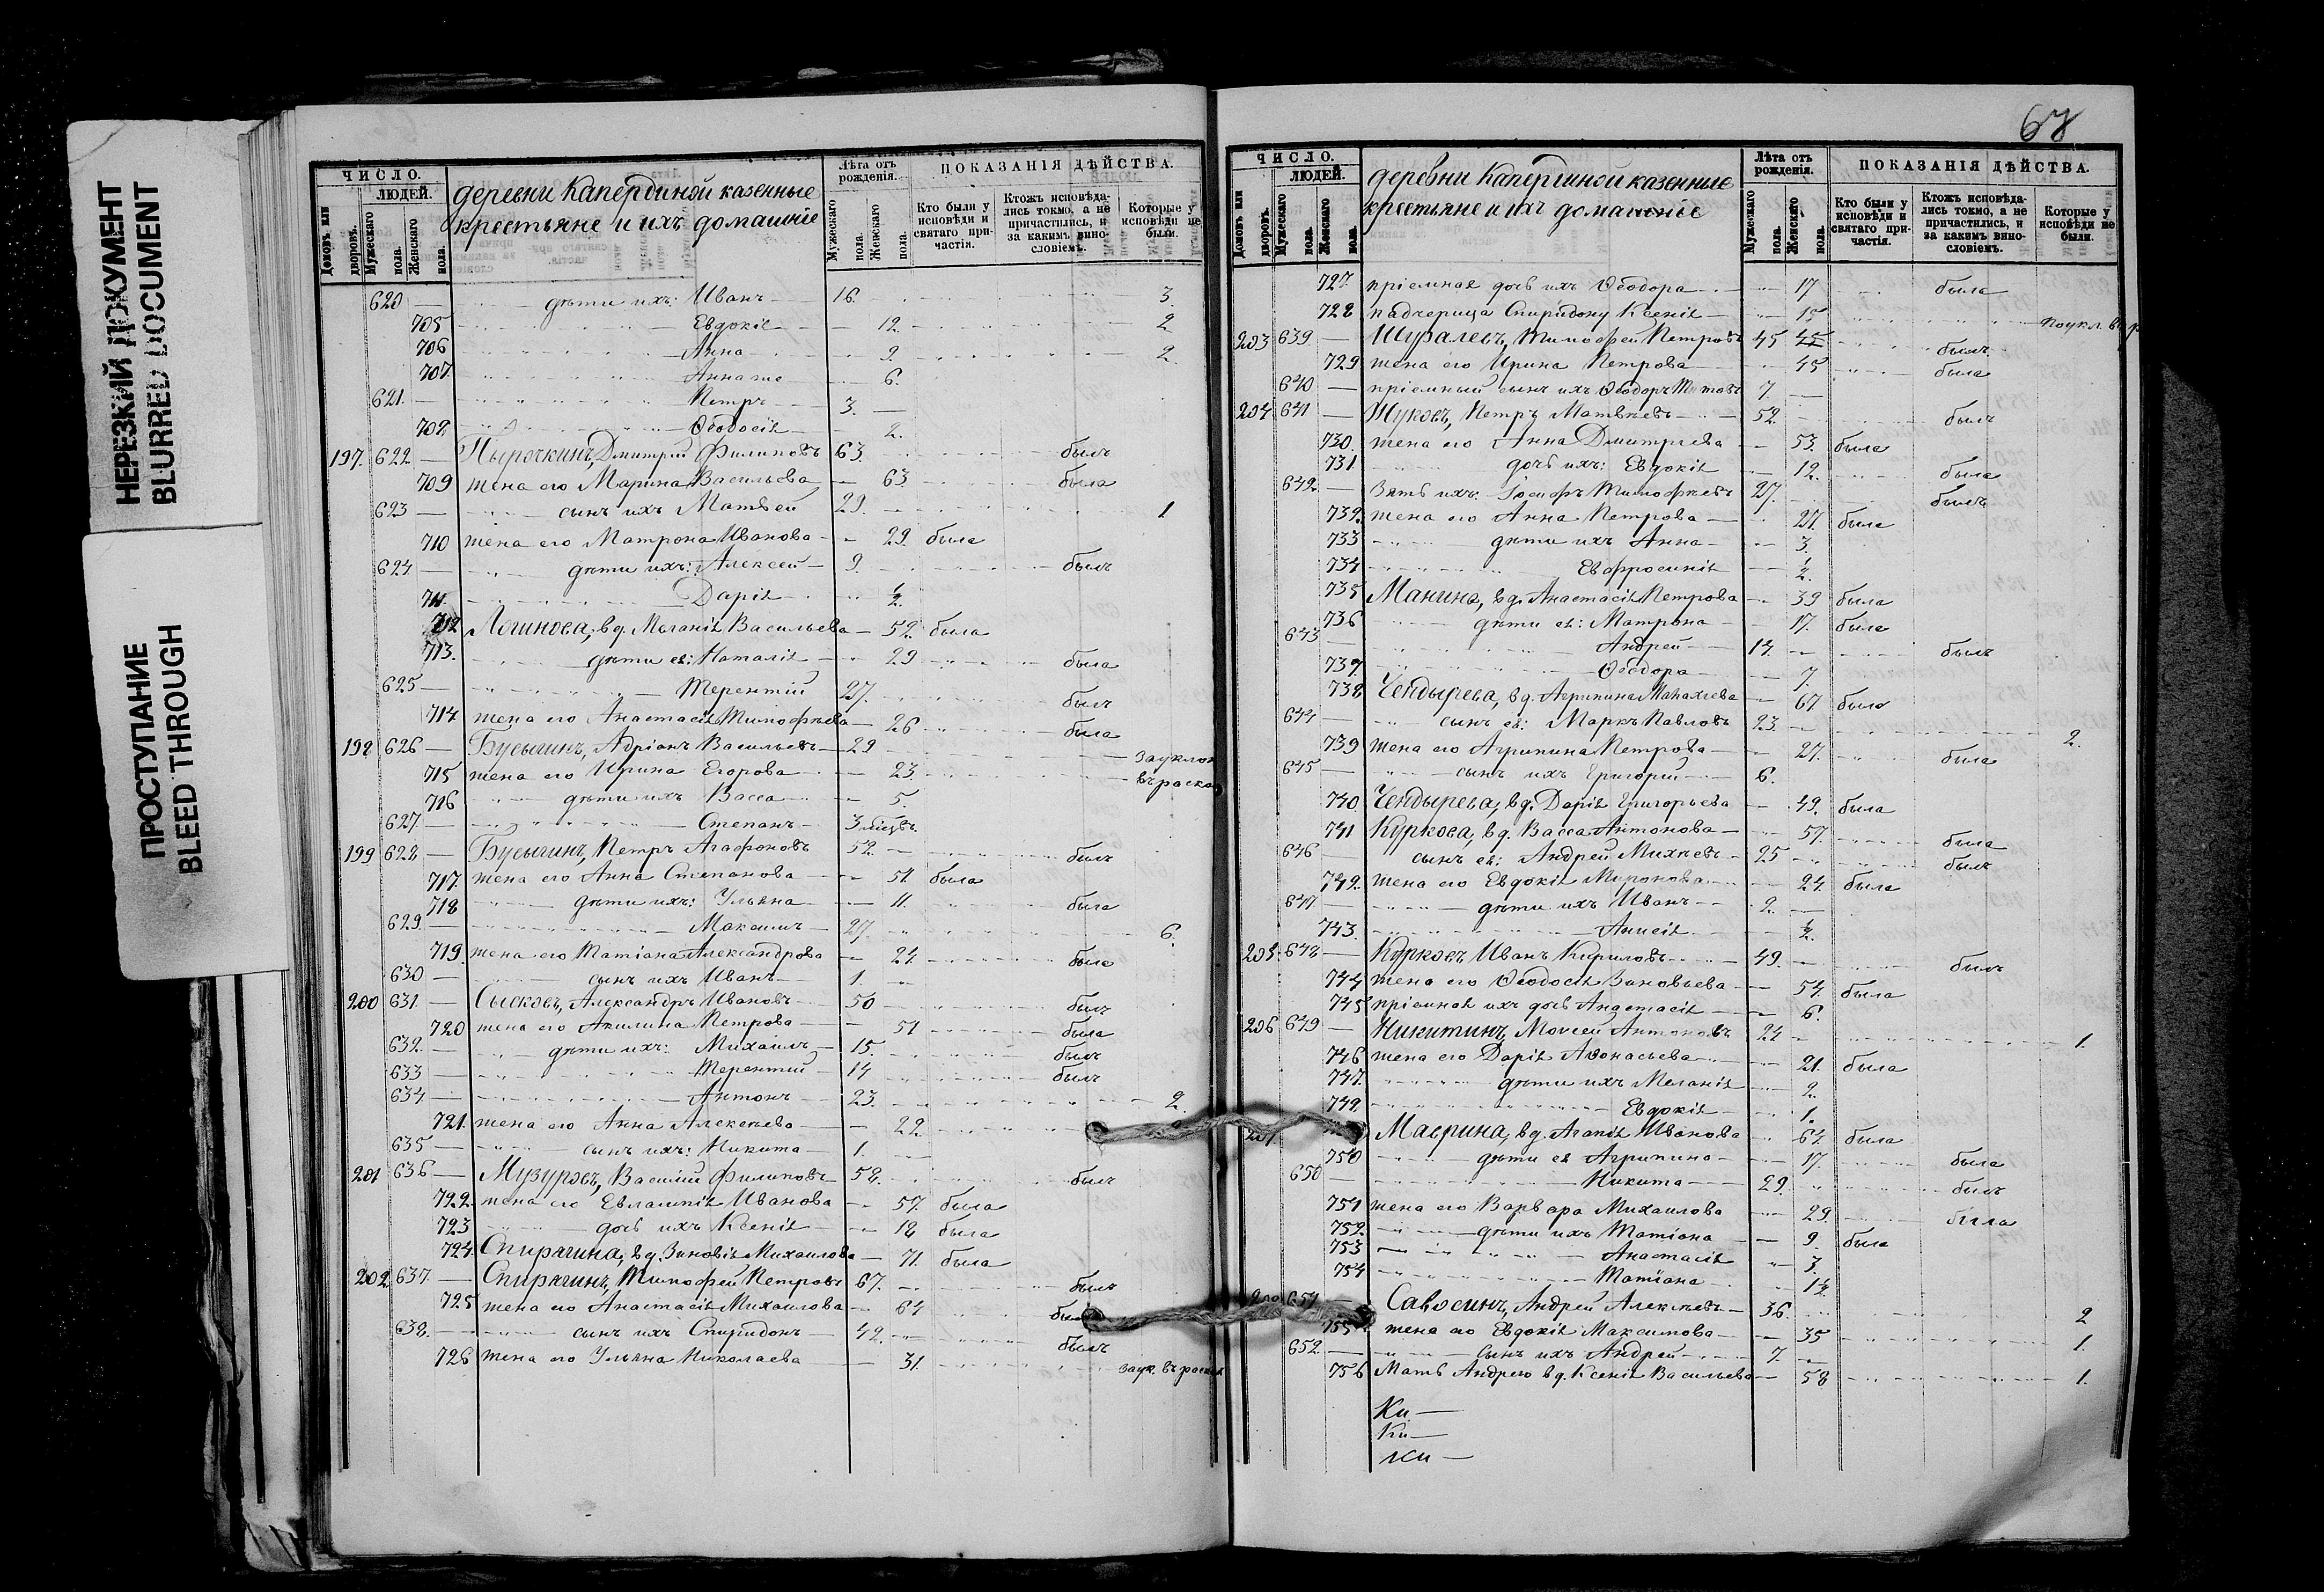 НЕРЕЗКИЙ ДОКУМЕНТ
BLURRED DOCUMENT
ПРОСТУПАНИЕ
BLEED THROUGH
ЧИСЛО.
ЛЮДЕЙ.
Домовъ или дворовъ.
Мужескаго пола.
Женскаго пола.
деревни Капердиной казенные
крестьяне и ихъ домашніе
Лѣта отъ рожденія.
Мужескаго пола.
Женскаго пола.
ПОКАЗАНІЯ ДѢЙСТВА.
Кто были у исповѣди и святаго причастія.
Ктожъ исповѣдались токмо, а не причастились, и за какимъ винословіемъ.
Которые у исповѣди не были.
620 — дѣти ихъ: Иванъ 16. 3.
705 Евдокія 12. 2
706 Анна 9. 2
707. Анна же 6.
621. Петръ 3.
708. Ѳеодосія 2.
197. 622 — Пырочкинъ, Дмитрій Филиповъ 63. былъ
709 жена его Марина Васильева 63. была
623 — сынъ ихъ Матвей 29. 1
710 жена его Матрона Иванова 29. была
624 — дѣти ихъ: Алексей 9. былъ
711. Дарія ½
712 Логинова, вд. Меланія Васильева 52. была
713. дѣти ея: Наталія 29 была
625 — Терентій 27. былъ
714 жена его Анастасія Тимофѣева 26 была
198 626 — Бусыгинъ, Адріанъ Васильевъ 29 за уклон
715 жена его Ирина Егорова 23. въ раско
716 дѣти ихъ Васса 5.
627. Степанъ 3 мѣсъ
199 628 — Бусыгинъ, Петръ Агафоновъ 52. былъ
717. жена его Анна Степанова 51 была
718 дѣти ихъ: Ульяна 11. была
629. Максимъ 27. 6.
719. жена его Татіана Александрова 24 была
630 — сынъ ихъ Иванъ 1.
200 631. — Сысковъ, Александръ Ивановъ 50 былъ
720 жена его Акилина Петрова 51 была
632. — дѣти ихъ: Михаилъ 15. былъ
633 — Терентій 14 былъ
634 — Антонъ 23. 2.
721. жена его Анна Алексѣева 22
635 — сынъ ихъ: Никита 1.
201 636 — Музуровъ, Василій Филиповъ 58. былъ
722. жена его Евлампія Иванова 57. была
723 дочь ихъ Ксенія 18 была
724. Спирягина, вд. Зиновія Михаилова 71. была
202 637. — Спирягинъ, Тимофей Петровъ 67. былъ
725 жена его Анастасія Михаилова 64
638. — сынъ ихъ Спиридонъ 42. былъ
726 жена его Ульяна Николаева 31. за ук. въ раскол
ЧИСЛО.
ЛЮДЕЙ.
Домовъ или дворовъ.
Мужескаго пола.
Женскаго пола.
деревни Капердиной казенные
крестьяне и ихъ домашніе
Лѣта отъ рожденія.
Мужескаго пола.
Женскаго пола.
ПОКАЗАНІЯ ДѢЙСТВА.
Кто были у исповѣди и святаго причастія.
Ктожъ исповѣдались токмо, а не причастились, и за какимъ винословіемъ.
Которые у исповѣди не были.
727. пріемная дочь ихъ Ѳеодора 17 была
728 падчерица Спиридону Ксенія 15 по укл. въ р
203 639 — Шувалевъ, Тимофей Петровъ 45 былъ
729 жена его Ирина Петрова 45 была
640 — пріемный сынъ ихъ Ѳеодоръ Титовъ 7.
204 641 — Жуковъ, Петръ Матвѣевъ 52. былъ
730. жена его Анна Дмитріева 53. была
731. дочь ихъ: Евдокія 12. была
642. — Зять ихъ: Іосифъ Тимофѣевъ 27. былъ
732. жена его Анна Петрова 27. была
733 дѣти ихъ Анна 3.
734 Евфросинія ½
735 Манина, вд. Анастасія Петрова 39 была
736 дѣти ея: Матрона 17. была
643 — Андрей 14. былъ
737. Ѳеодора 7.
738 Чендырева, вд. Агрипина Малахіева 67 была
644 — сынъ ея: Маркъ Павловъ 23. 2.
739 жена его Агрипина Петрова 27. была
645 — сынъ ихъ Григорій 6.
740. Чендырева, вд. Дарія Григорьева 49. была
741 Куркова, вд. Васса Антонова 57. была
646 — сынъ ея: Андрей Михѣевъ 25 былъ
742. жена его Евдокія Миронова 24. была
647. — дѣти ихъ Иванъ 2.
743. Анисія ½
205. 648 — Курковъ Иванъ Кириловъ 49. былъ
744 жена его Ѳеодосія Зиновьева 54. была
745 пріемная ихъ дочь Анастасія 6.
206 649 — Никитинъ, Моисей Антоновъ 24 1.
746 жена его Дарія Аѳонасьева 21. была
747. дѣти ихъ Меланія 2.
749. Евдокія 1.
Маврина, вд. Агапія Иванова 64 была
750 дѣти ея Агрипина 17. была
650 — Никита 29. былъ
751 жена его Варвара Михаилова 29. была
752. дѣти ихъ Татіана 9. была
753 Анастасія 3.
754 Татіана 1½
651 Савосинъ, Андрей Алексѣевъ 36. 2
755 жена его Евдокія Максимова 35 1.
652. — Сынъ ихъ Андрей 7.
756 Мать Андрею вд. Ксенія Васильева 58 1.
Ки —
Ки —